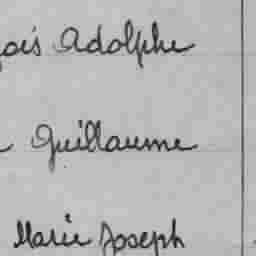 Adolphe
Guillaume
Marie Joseph